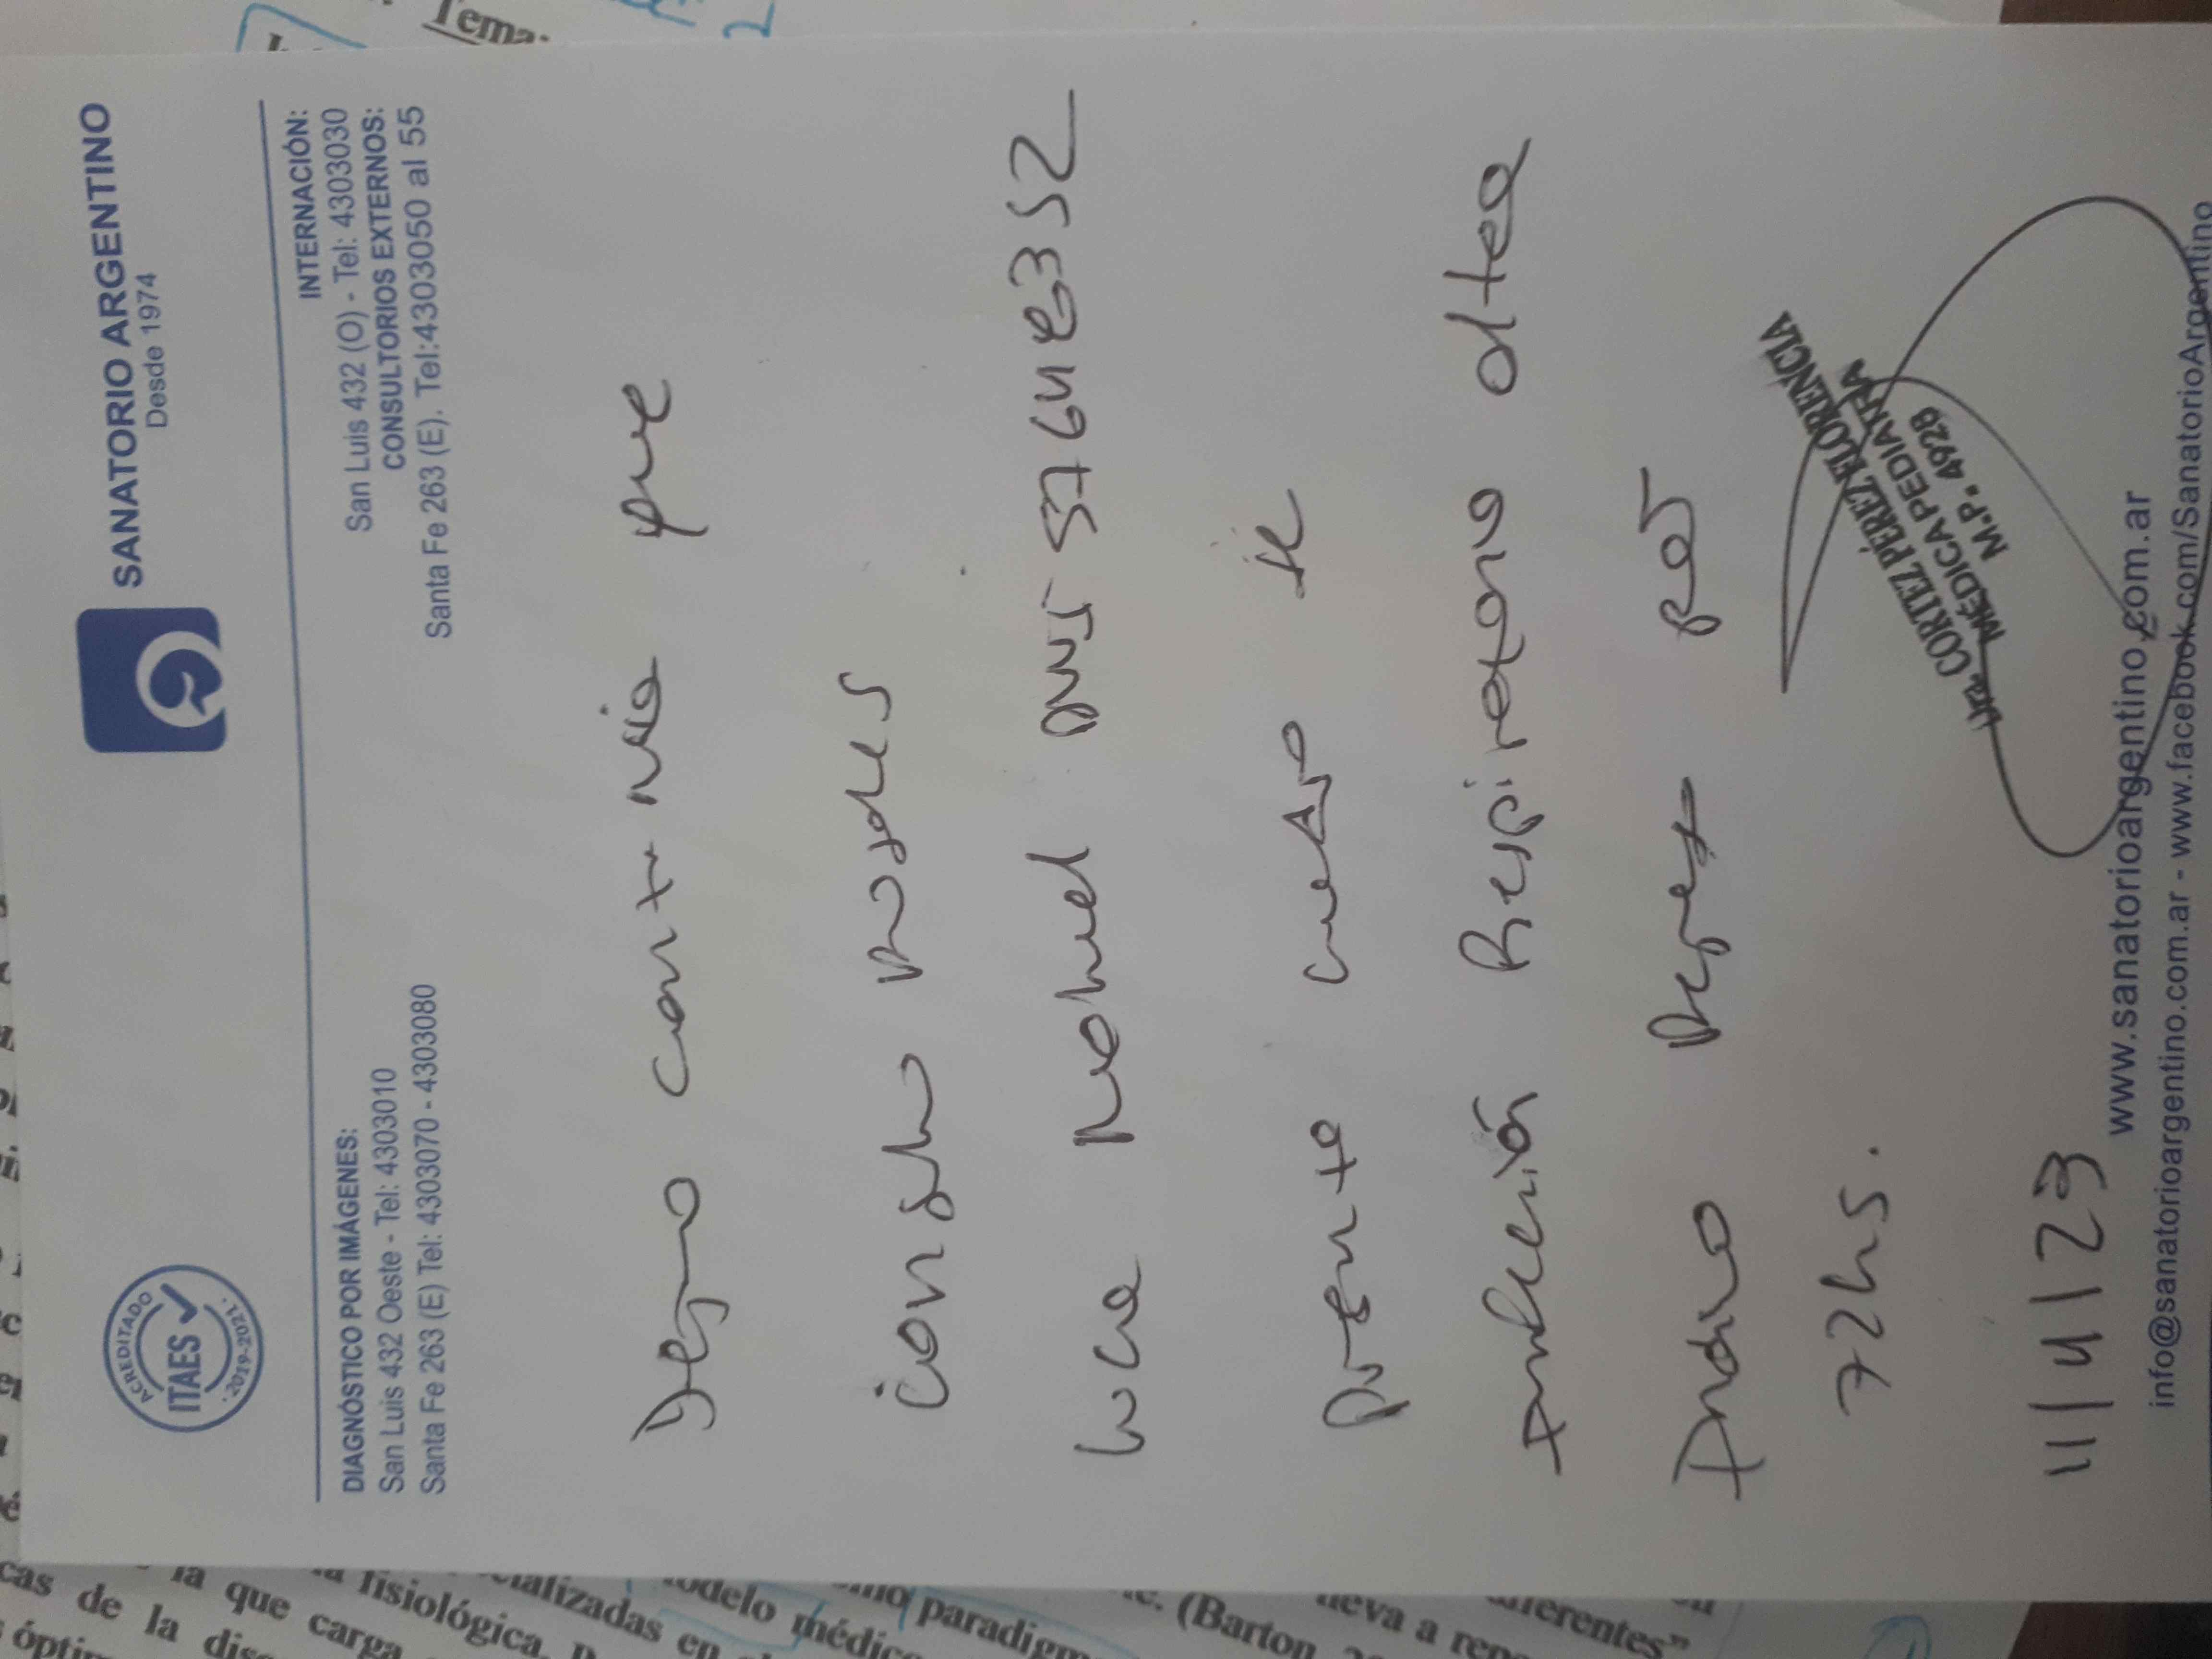 SANATORIO ARGENTINO
Desde 1974
ACREDITADO
ITAES
2019-2021
DIAGNÓSTICO POR IMÁGENES:
San Luis 432 Oeste - Tel: 4303010
Santa Fe 263 (E) Tel: 4303070 - 4303080
INTERNACIÓN:
San Luis 432 (O) - Tel: 4303030
CONSULTORIOS EXTERNOS:
Santa Fe 263 (E). Tel:4303050 al 55
Dejo constancia que
Rosales
Luca DNI
presenta cuadro de
infección Respiratoria altea
Indico por
72hs.
11/4/23
CORTEZ PÉREZ FLORENCIA
MÉDICA PEDIATRA
M.P. 4928
www.sanatorioargentino.com.ar
info@sanatorioargentino.com.ar - www.facebook.com/SanatorioArgentino
Tema:
cas de la
la que carga
fisiológica.
paradigm
(Barton